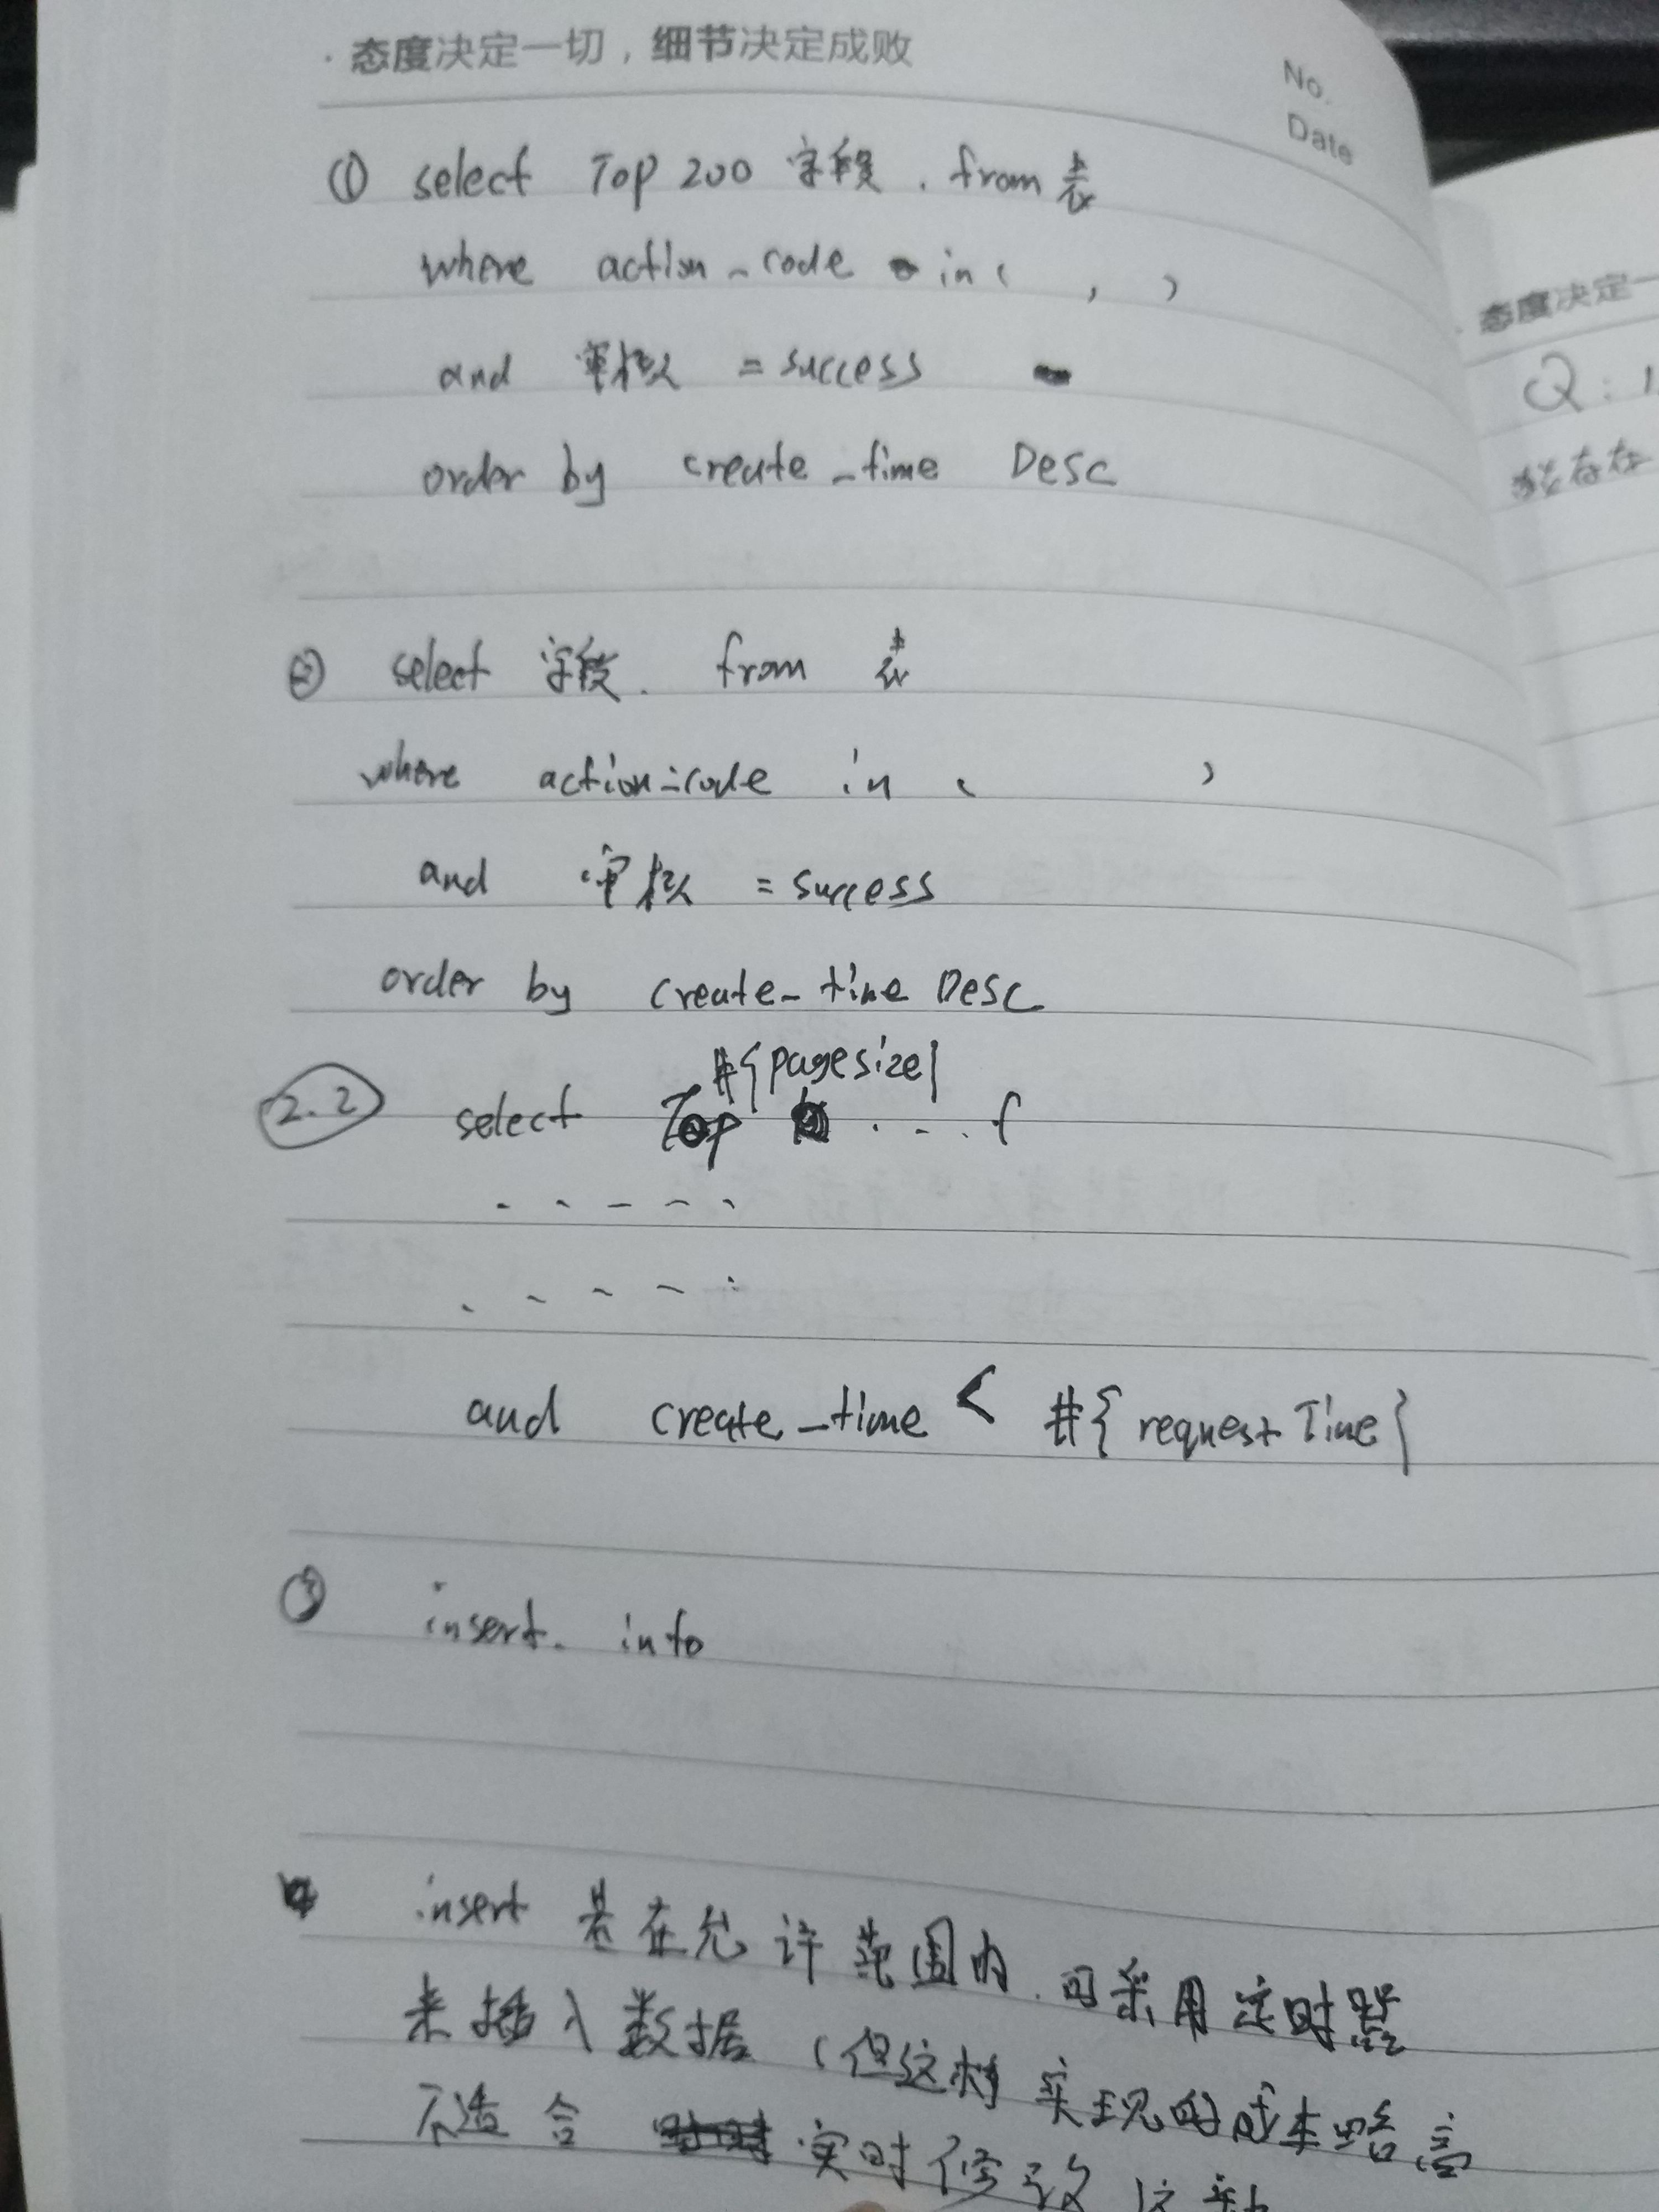 态度决定一切，细节决定成败
No.
Date
① select Top 200 字段 . from 表
where action_code in ( , )
and 审核 = success
order by create_time Desc
② select 字段 . from 表
where action_code in ( )
and 审核 = success
order by create_time Desc
#{pagesize}
2.2 select Top . . . . f
. . . . .
. . . . .
and create_time < #{requestTime}
③ insert. into
4 insert 若在允许范围内.可采用定时器
来插入数据 (但这样实现的成本略高
不适合 实时修改这
态度决定一
Q: 1.
存在